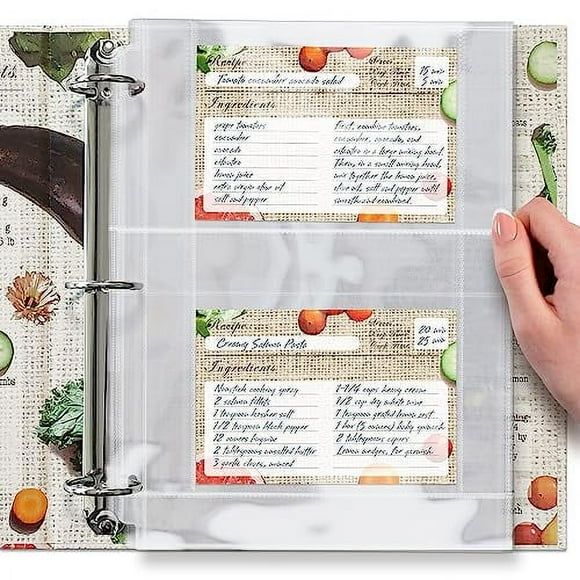 Recipe
15 min
5 min
Tomato cucumber avocado salad
Ingredients
grape tomatoes
cucumber
avocado
cilantro
lemon juice
extra virgin olive oil
salt and pepper
First, combine tomatoes,
cucumber, avocado, and
cilantro in a large mixing bowl.
Then, in a small mixing bowl,
mix together the lemon juice,
olive oil, salt and pepper until
smooth and combined.
Recipe
20 min
25 min
Creamy Salmon Pasta
Ingredients
Nonstick cooking spray
2 salmon fillets
1 teaspoon kosher salt
1/2 teaspoon black pepper
12 ounces linguine
2 tablespoons unsalted butter
3 garlic cloves, minced
1-1/4 cups heavy cream
1/2 cup dry white wine
1 teaspoon grated lemon zest
1 bar (5 ounces) baby spinach
2 tablespoons capers
Lemon wedges, for garnish